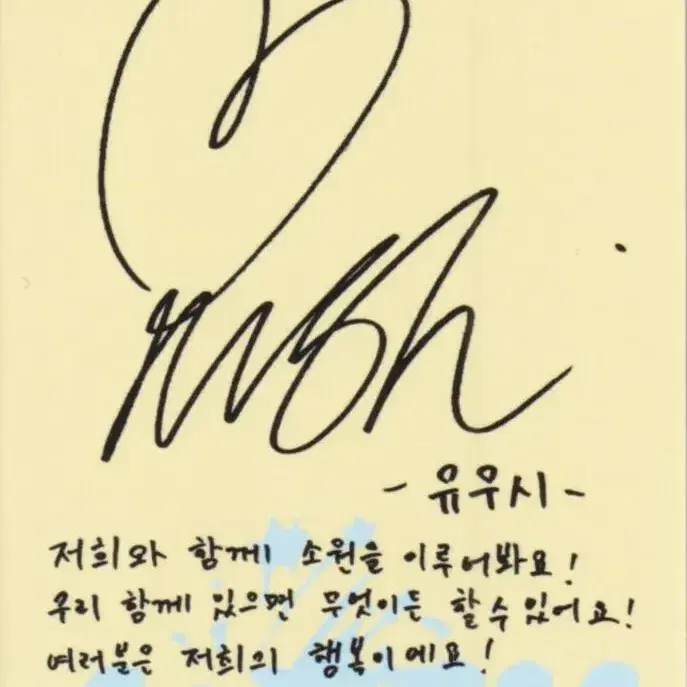 Yushi
- 유우시 -
저희와 함께 소원을 이루어봐요!
우리 함께 있으면 무엇이든 할 수 있어요!
여러분은 저희의 행복이에요!